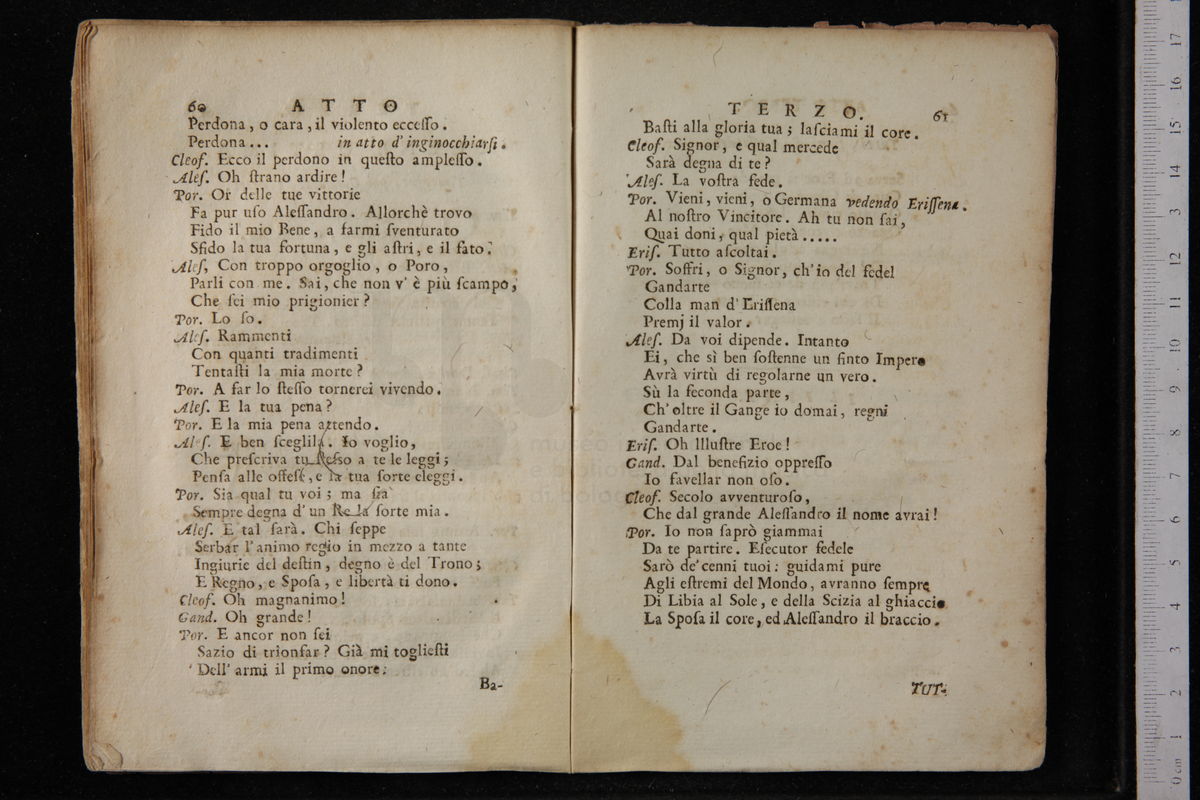 60 ATTO
Perdona, o cara, il violento ecceſſo.
Perdona... in atto d'inginocchiarſi.
Cleof. Ecco il perdono in queſto ampleſſo.
Aleſ. Oh ſtrano ardire!
Por. Or delle tue vittorie
Fa pur uſo Aleſſandro. Allorchè trovo
Fido il mio Bene, a farmi ſventurato
Sfido la tua fortuna, e gli aſtri, e il fato.
Aleſ. Con troppo orgoglio, o Poro,
Parli con me. Sai, che non v'è più ſcampo,
Che ſei mio prigionier?
Por. Lo ſo.
Aleſ. Rammenti
Con quanti tradimenti
Tentaſti la mia morte?
Por. A far lo ſteſſo tornerei vivendo.
Aleſ. E la tua pena?
Por. E la mia pena attendo.
Aleſ. E ben ſceglila. Io voglio,
Che preſcriva tu ſteſſo a te le leggi;
Penſa alle offeſe, e la tua ſorte eleggi.
Por. Sia qual tu voi; ma ſia
Sempre degna d'un Re la ſorte mia.
Aleſ. E tal ſarà. Chi ſeppe
Serbar l'animo regio in mezzo a tante
Ingiurie del deſtin, degno è del Trono;
E Regno, e Spoſa, e libertà ti dono.
Cleof. Oh magnanimo!
Gand. Oh grande!
Por. E ancor non ſei
Sazio di trionfar? Già mi toglieſti
Dell'armi il primo onore:
Ba-
TERZO. 61
Baſti alla gloria tua; laſciami il core.
Cleof. Signor, e qual mercede
Sarà degna di te?
Aleſ. La voſtra fede.
Por. Vieni, vieni, o Germana vedendo Eriſſena.
Al noſtro Vincitore. Ah tu non ſai,
Quai doni, qual pietà.....
Eriſ. Tutto aſcoltai.
Por. Soffri, o Signor, ch'io del fedel
Gandarte
Colla man d'Eriſſena
Premj il valor.
Aleſ. Da voi dipende. Intanto
Ei, che sì ben ſoſtenne un finto Impero
Avrà virtù di regolarne un vero.
Sù la feconda parte,
Ch'oltre il Gange io domai, regni
Gandarte.
Eriſ. Oh Illuſtre Eroe!
Gand. Dal benefizio oppreſſo
Io favellar non oſo.
Cleof. Secolo avventuroſo,
Che dal grande Aleſſandro il nome avrai!
Por. Io non ſaprò giammai
Da te partire. Eſecutor fedele
Sarò de'cenni tuoi: guidami pure
Agli eſtremi del Mondo, avranno ſempre
Di Libia al Sole, e della Scizia al ghiaccio
La Spoſa il core, ed Aleſſandro il braccio.
TUT-